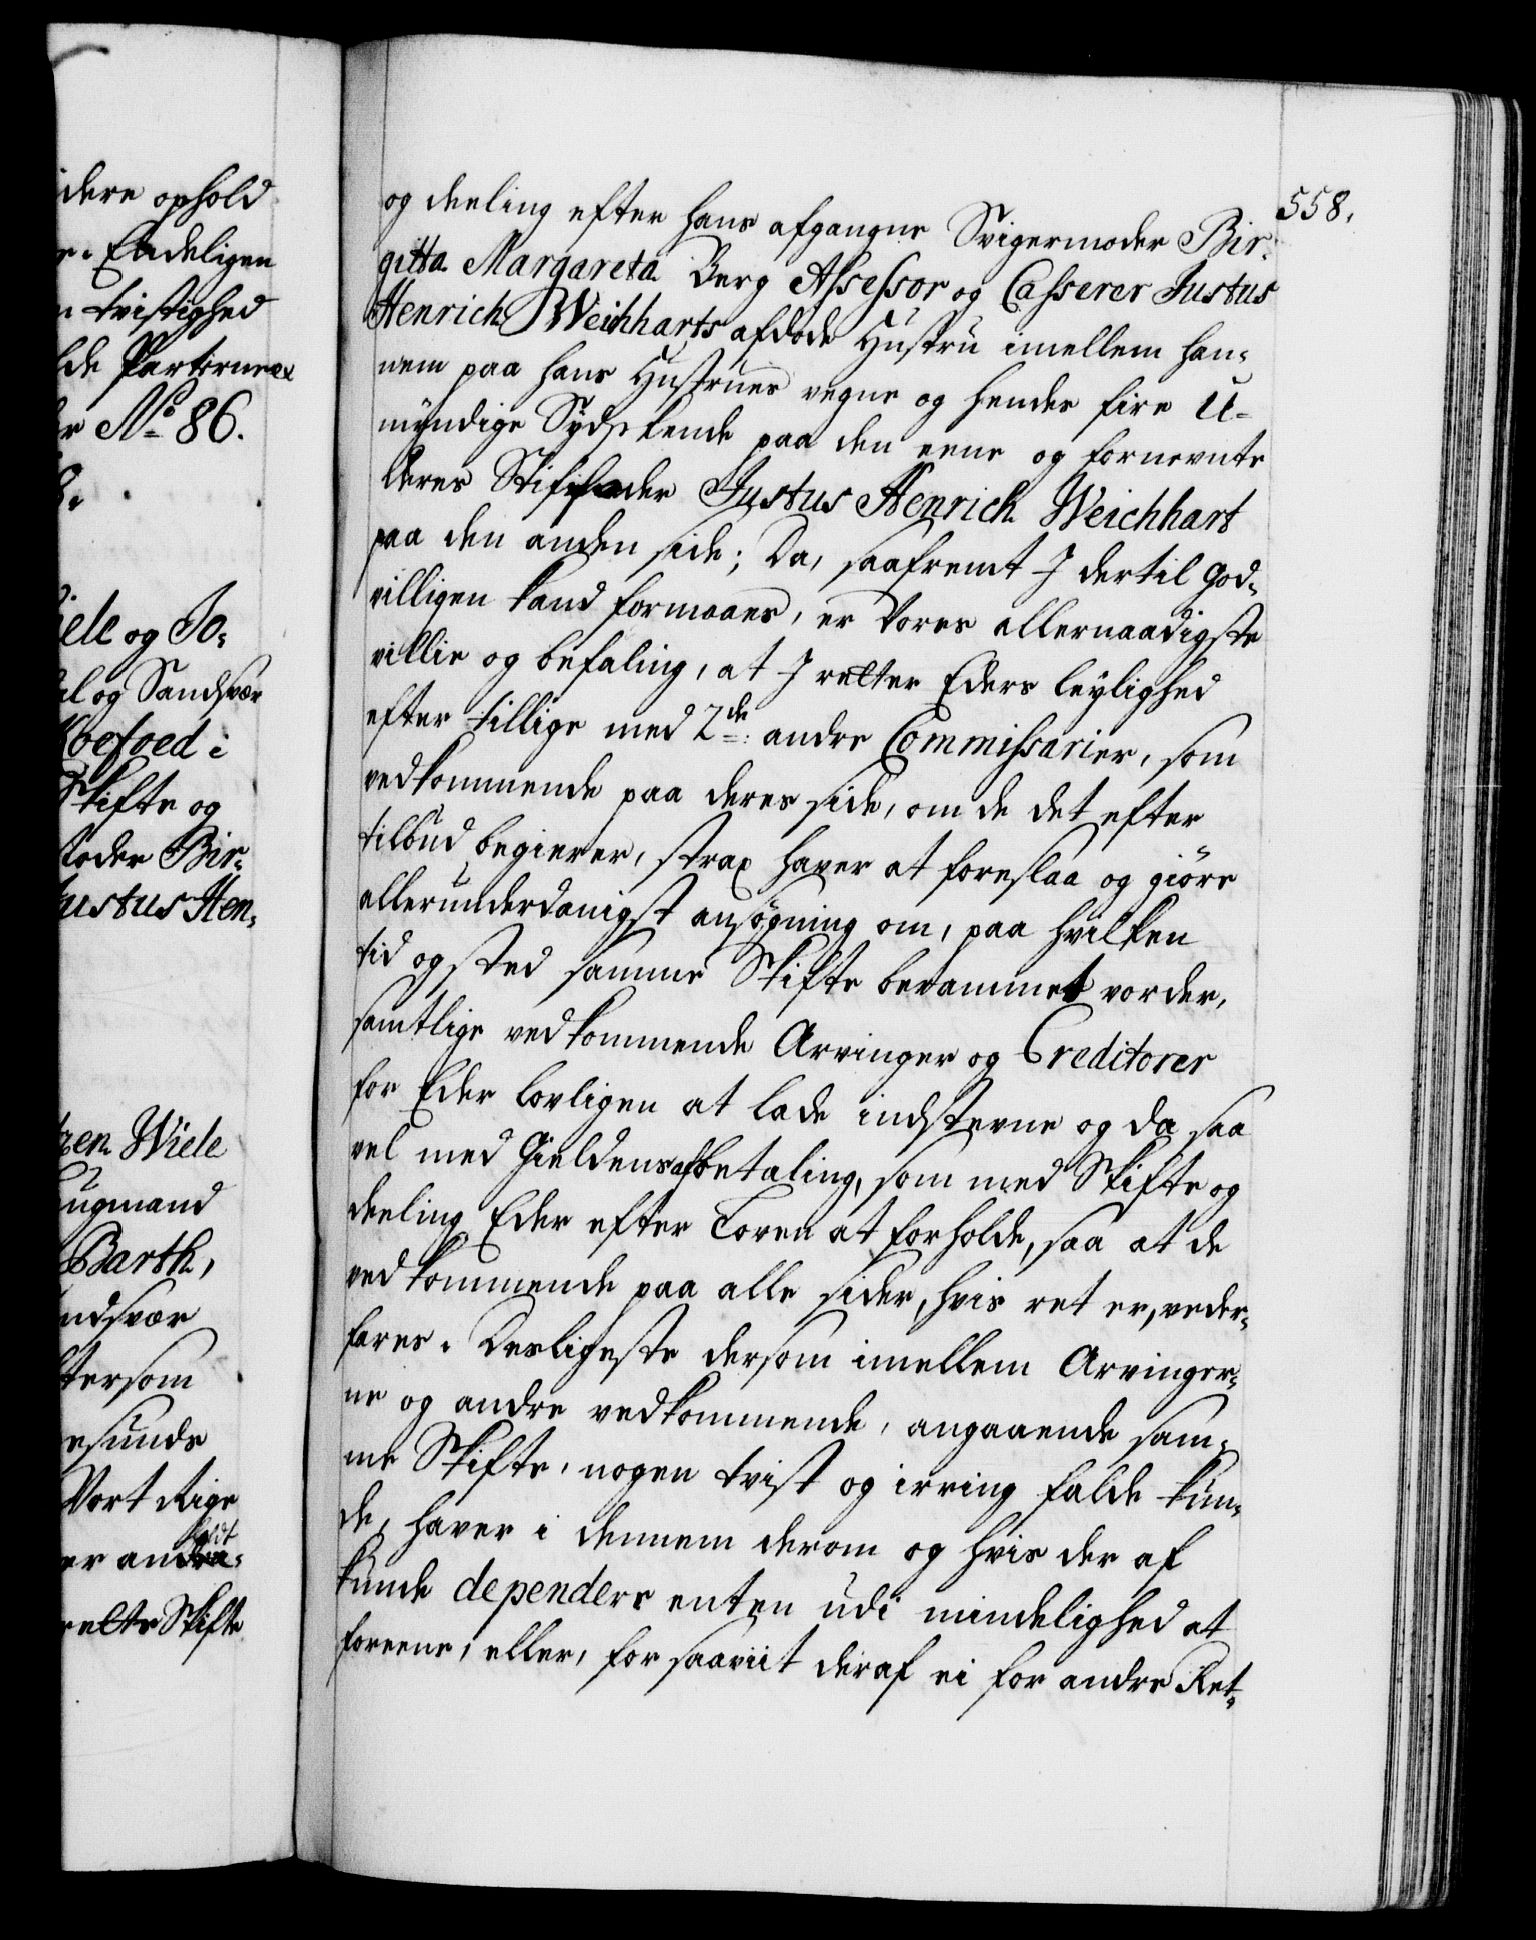 idere ophold
r. Endeligen
n tvistighed
lde Parterne
r No 86.
8.
iele og Jo-
al og Sandsvær
Koefoed i
Skifte og
moder Bir-
Justus Hen-
tzen Wiele
Laugmand
Barth,
ndsvær
tersom
esunds
Vort Rige
er andra-
relte Skifte
558.
og deeling efter hans afgangne Svigermoder Bir-
gitta Margareta Berg Assessor og Casserer Justus
Henrich Weichharts afdøde Hustru imellem han-
nem paa hans Hustrues vegne og hendes fire U-
myndige Sydskende paa den eene og fornevnte
deres Stiffader Justus Henrich Weichhart
paa den anden side; Da, saafremt I dertil god-
villigen kand formaaes, er Vores allernaadigste
villie og befaling, at I retter Eders leylighed
efter tillige med 2de andre Commissarier, som
vedkommende paa deres side, om de det efter
tilbud begierer, strax haver at foreslaa og giöre
allerunderdanigst ansøgning om, paa hvilken
tid og sted samme Skifte berammet vorder,
samtlige vedkommende Arvinger og Creditorer
for Eder lovligen at lade indstevne og da saa
vel med Gieldens afbetaling, som med Skifte og
deeling Eder efter Loven at forholde, saa at de
vedkommende paa alle sider, hvis ret er, veder-
fares. Desligeste dersom imellem Arvinger-
ne og andre vedkommende, angaaende sam-
me Skifte, nogen tvist og irring falde kun-
de, haver i dennem derom og hvis der af
kunde dependere enten udi mindelighed at
foreene, eller, for saaviit deraf ei for andre Ret-